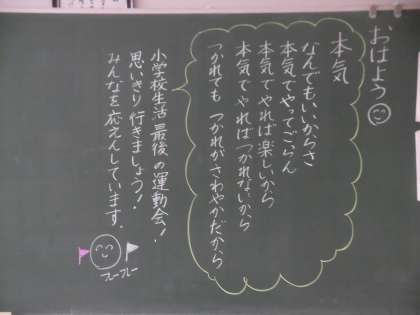 おはよう
本気
なんでもいいからさ
本気でやってごらん
本気でやれば楽しいから
本気でやればつかれないから
つかれても つかれがさわやかだから
小学校生活最後の運動会!
思いきり行きましょう!
みんなを応えんしています.
フレーフレー